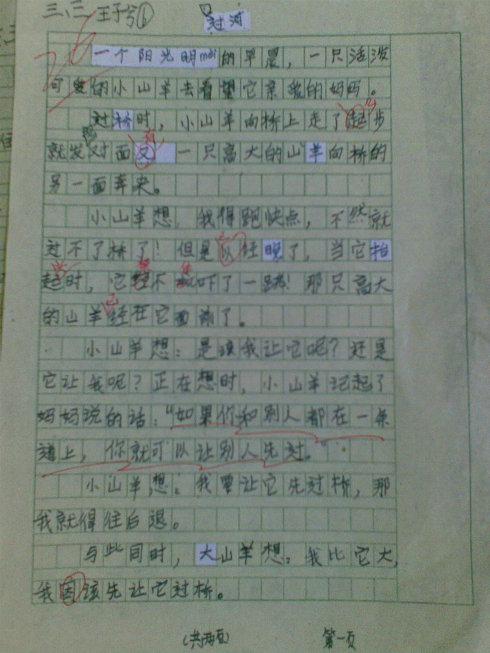 三、三 王子兮①
过河
一个阳光明mèi的早晨，一只活泼
可爱的小山羊去看望它亲爱的妈妈。
过桥时，小山羊向桥上走了起步
就发对面又一只高大的山羊向桥的
另一面奔来。
小山羊想，我得跑快点，不然就
过不了桥了！但是以经晚了，当它抬
起时，它经不 吓了一跳！那只高大
的山羊经在它面前了。
小山羊想：是该我让它呢？还是
它让我呢？正在想时，小山羊记起了
妈妈说的话："如果你和别人都在一条
道上，你就可以让别人先过。"
小山羊想：我要让它先过桥，那
我就得往后退。
与此同时，大山羊想：我比它大，
我因该先让它过桥。
(共两页) 第一页